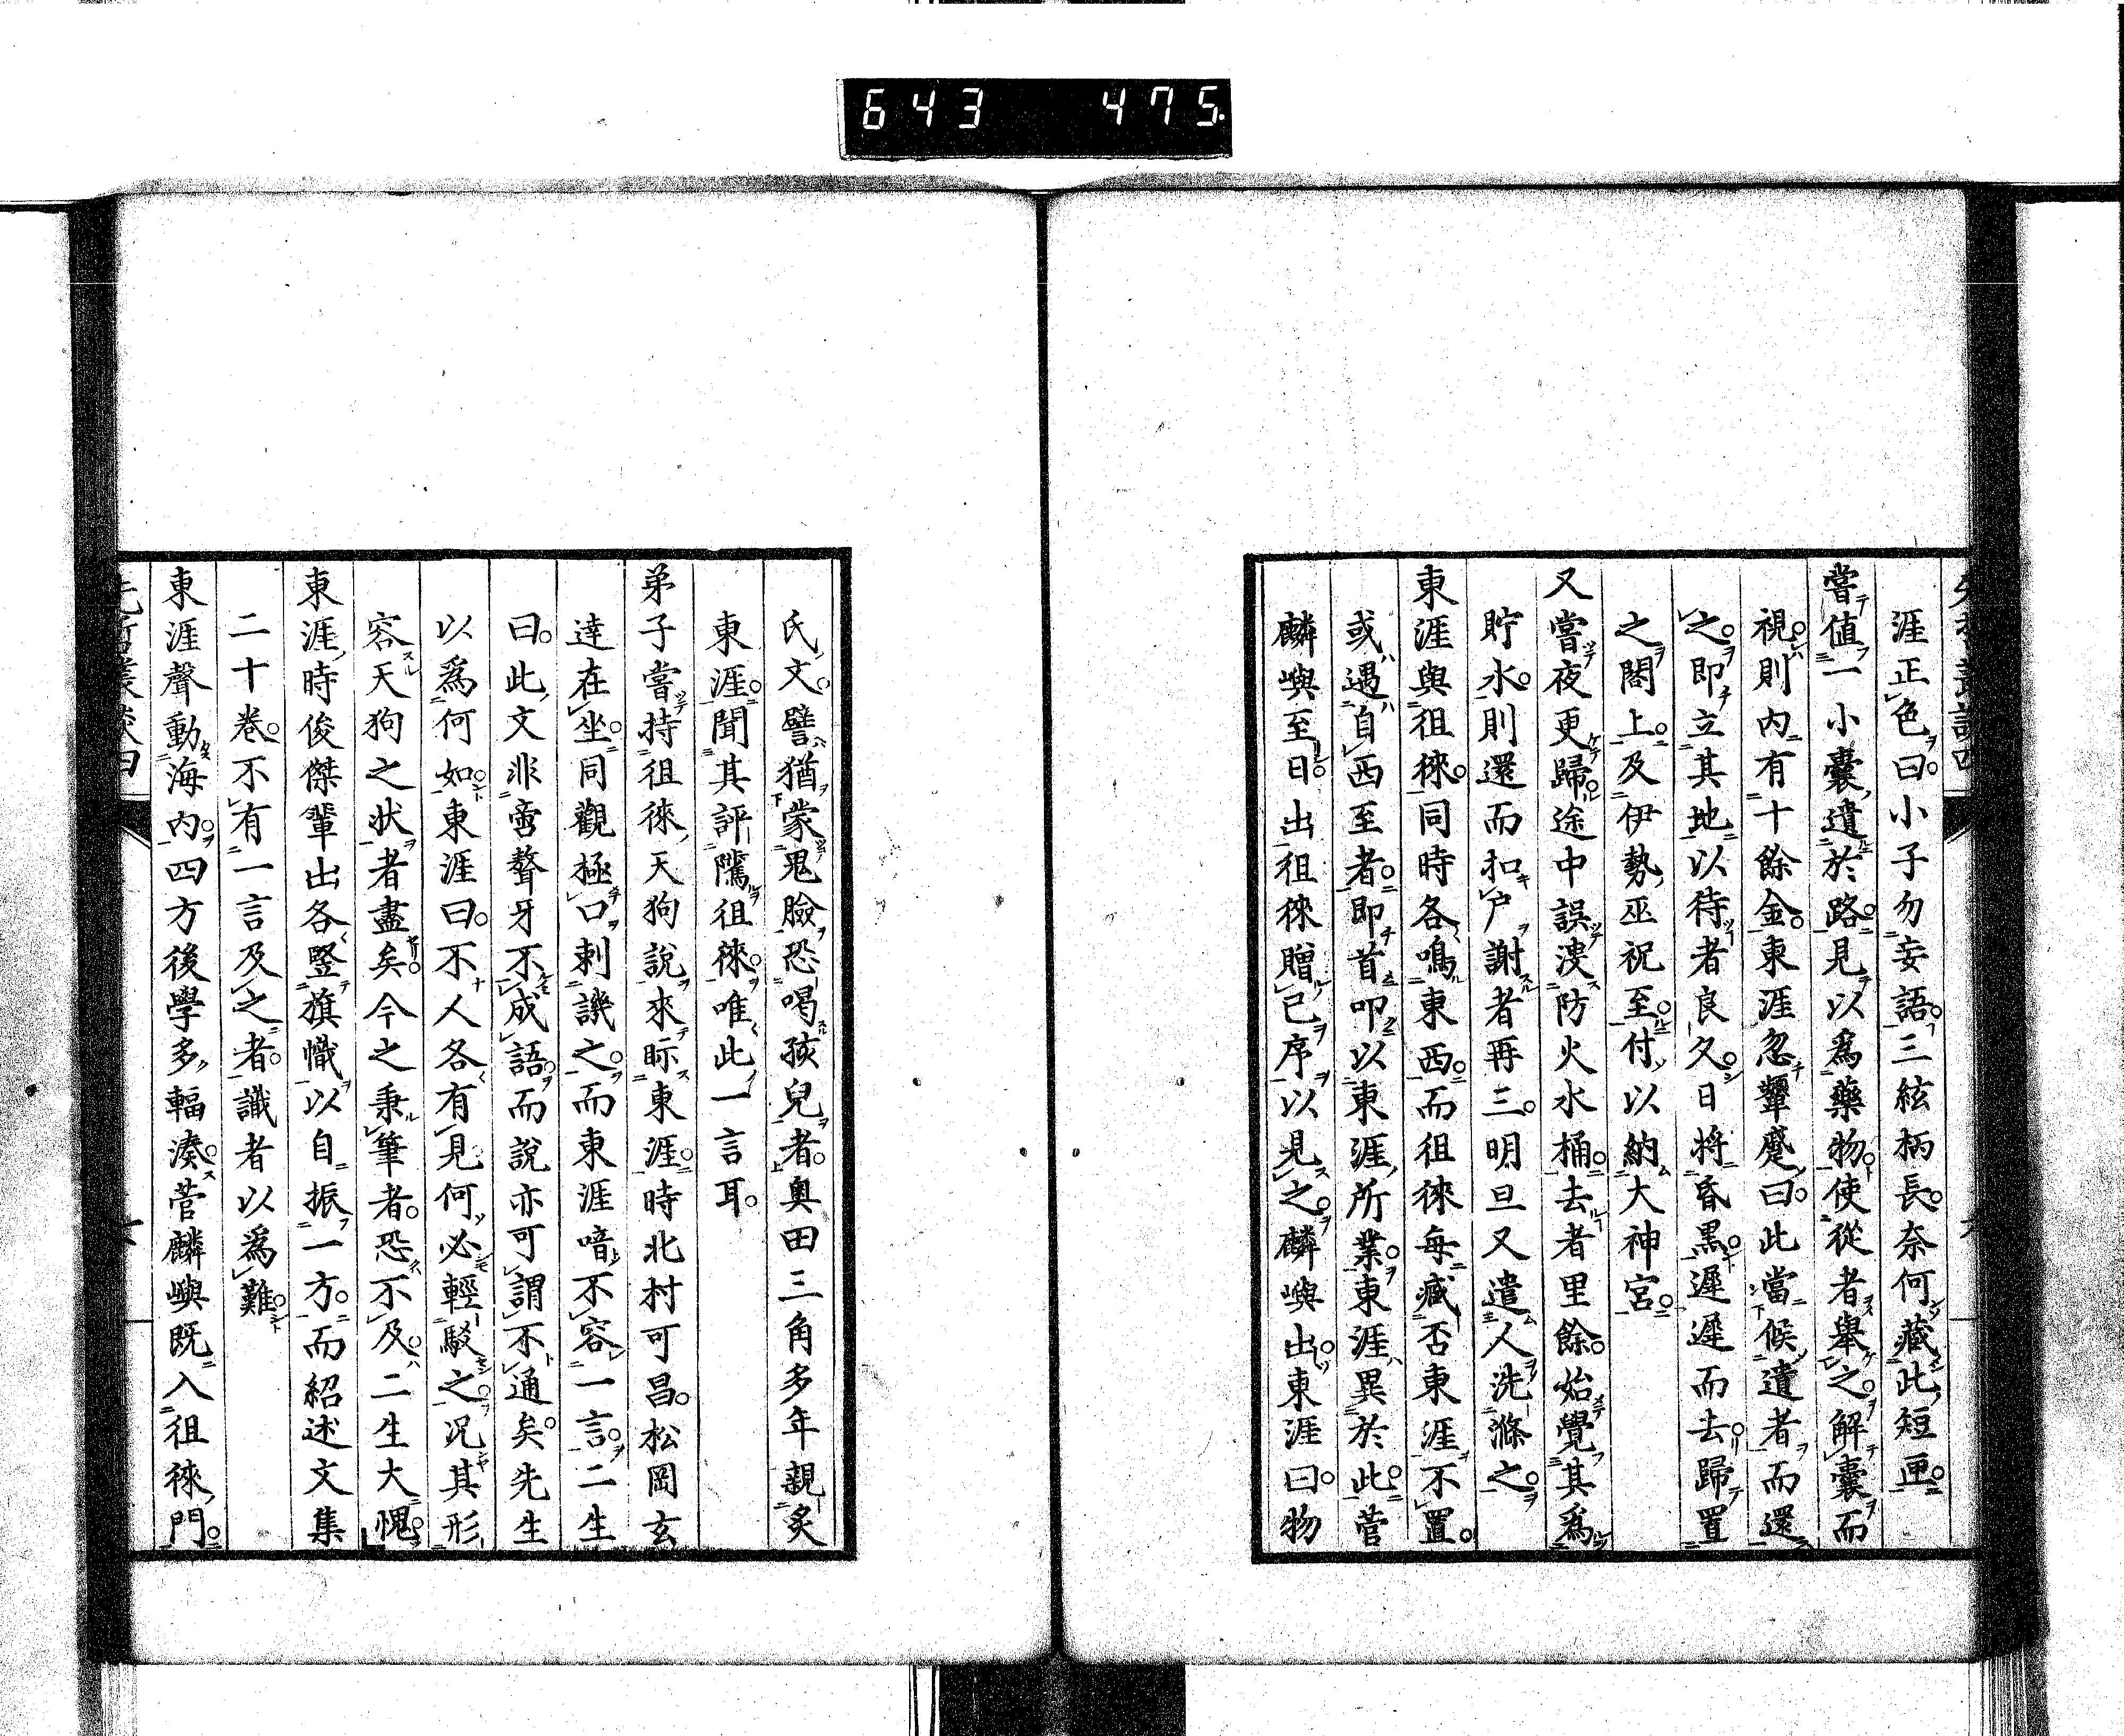 643 475.
涯正色曰小子勿妄語三絃柄長奈何藏此短匣
嘗値一小囊遺於路見以爲藥物使從者擧之解囊而
視則内有十餘金東涯忽顰蹙曰此當候遺者而還
之即立其地以待者良久日將昏黒遲遲而去歸置
之閣上及伊勢巫祝至付以納大神宮
又嘗夜更歸途中誤溲防火水桶去者里餘始覺其爲
貯水則還而扣戸謝者再三明旦又遣人洗滌之
東涯與徂徠同時各鳴東西而徂徠毎臧否東涯不置
或遇自西至者即首叩以東涯所業東涯異於此菅
麟嶼至日出徂徠贈已序以見之麟嶼出東涯曰物
氏文譬猶蒙鬼臉恐喝孩兒者奥田三角多年親炙
東涯聞其評隲徂徠唯此一言耳
弟子嘗持徂徠天狗説來眎東涯時北村可昌松岡玄
達在坐同觀極口刺譏之而東涯喑不容一言二生
曰此文非啻聱牙不成語而説亦可謂不通矣先生
以爲何如東涯曰不人各有見何必輕駁之况其形
容天狗之状者盡矣今之秉筆者恐不及二生大愧
東涯時俊傑輩出各竪旗幟以自振一方而紹述文集
二十卷不有一言及之者識者以爲難
東涯聲動海内四方後學多輻湊菅麟嶼既入徂徠門
先哲叢談四